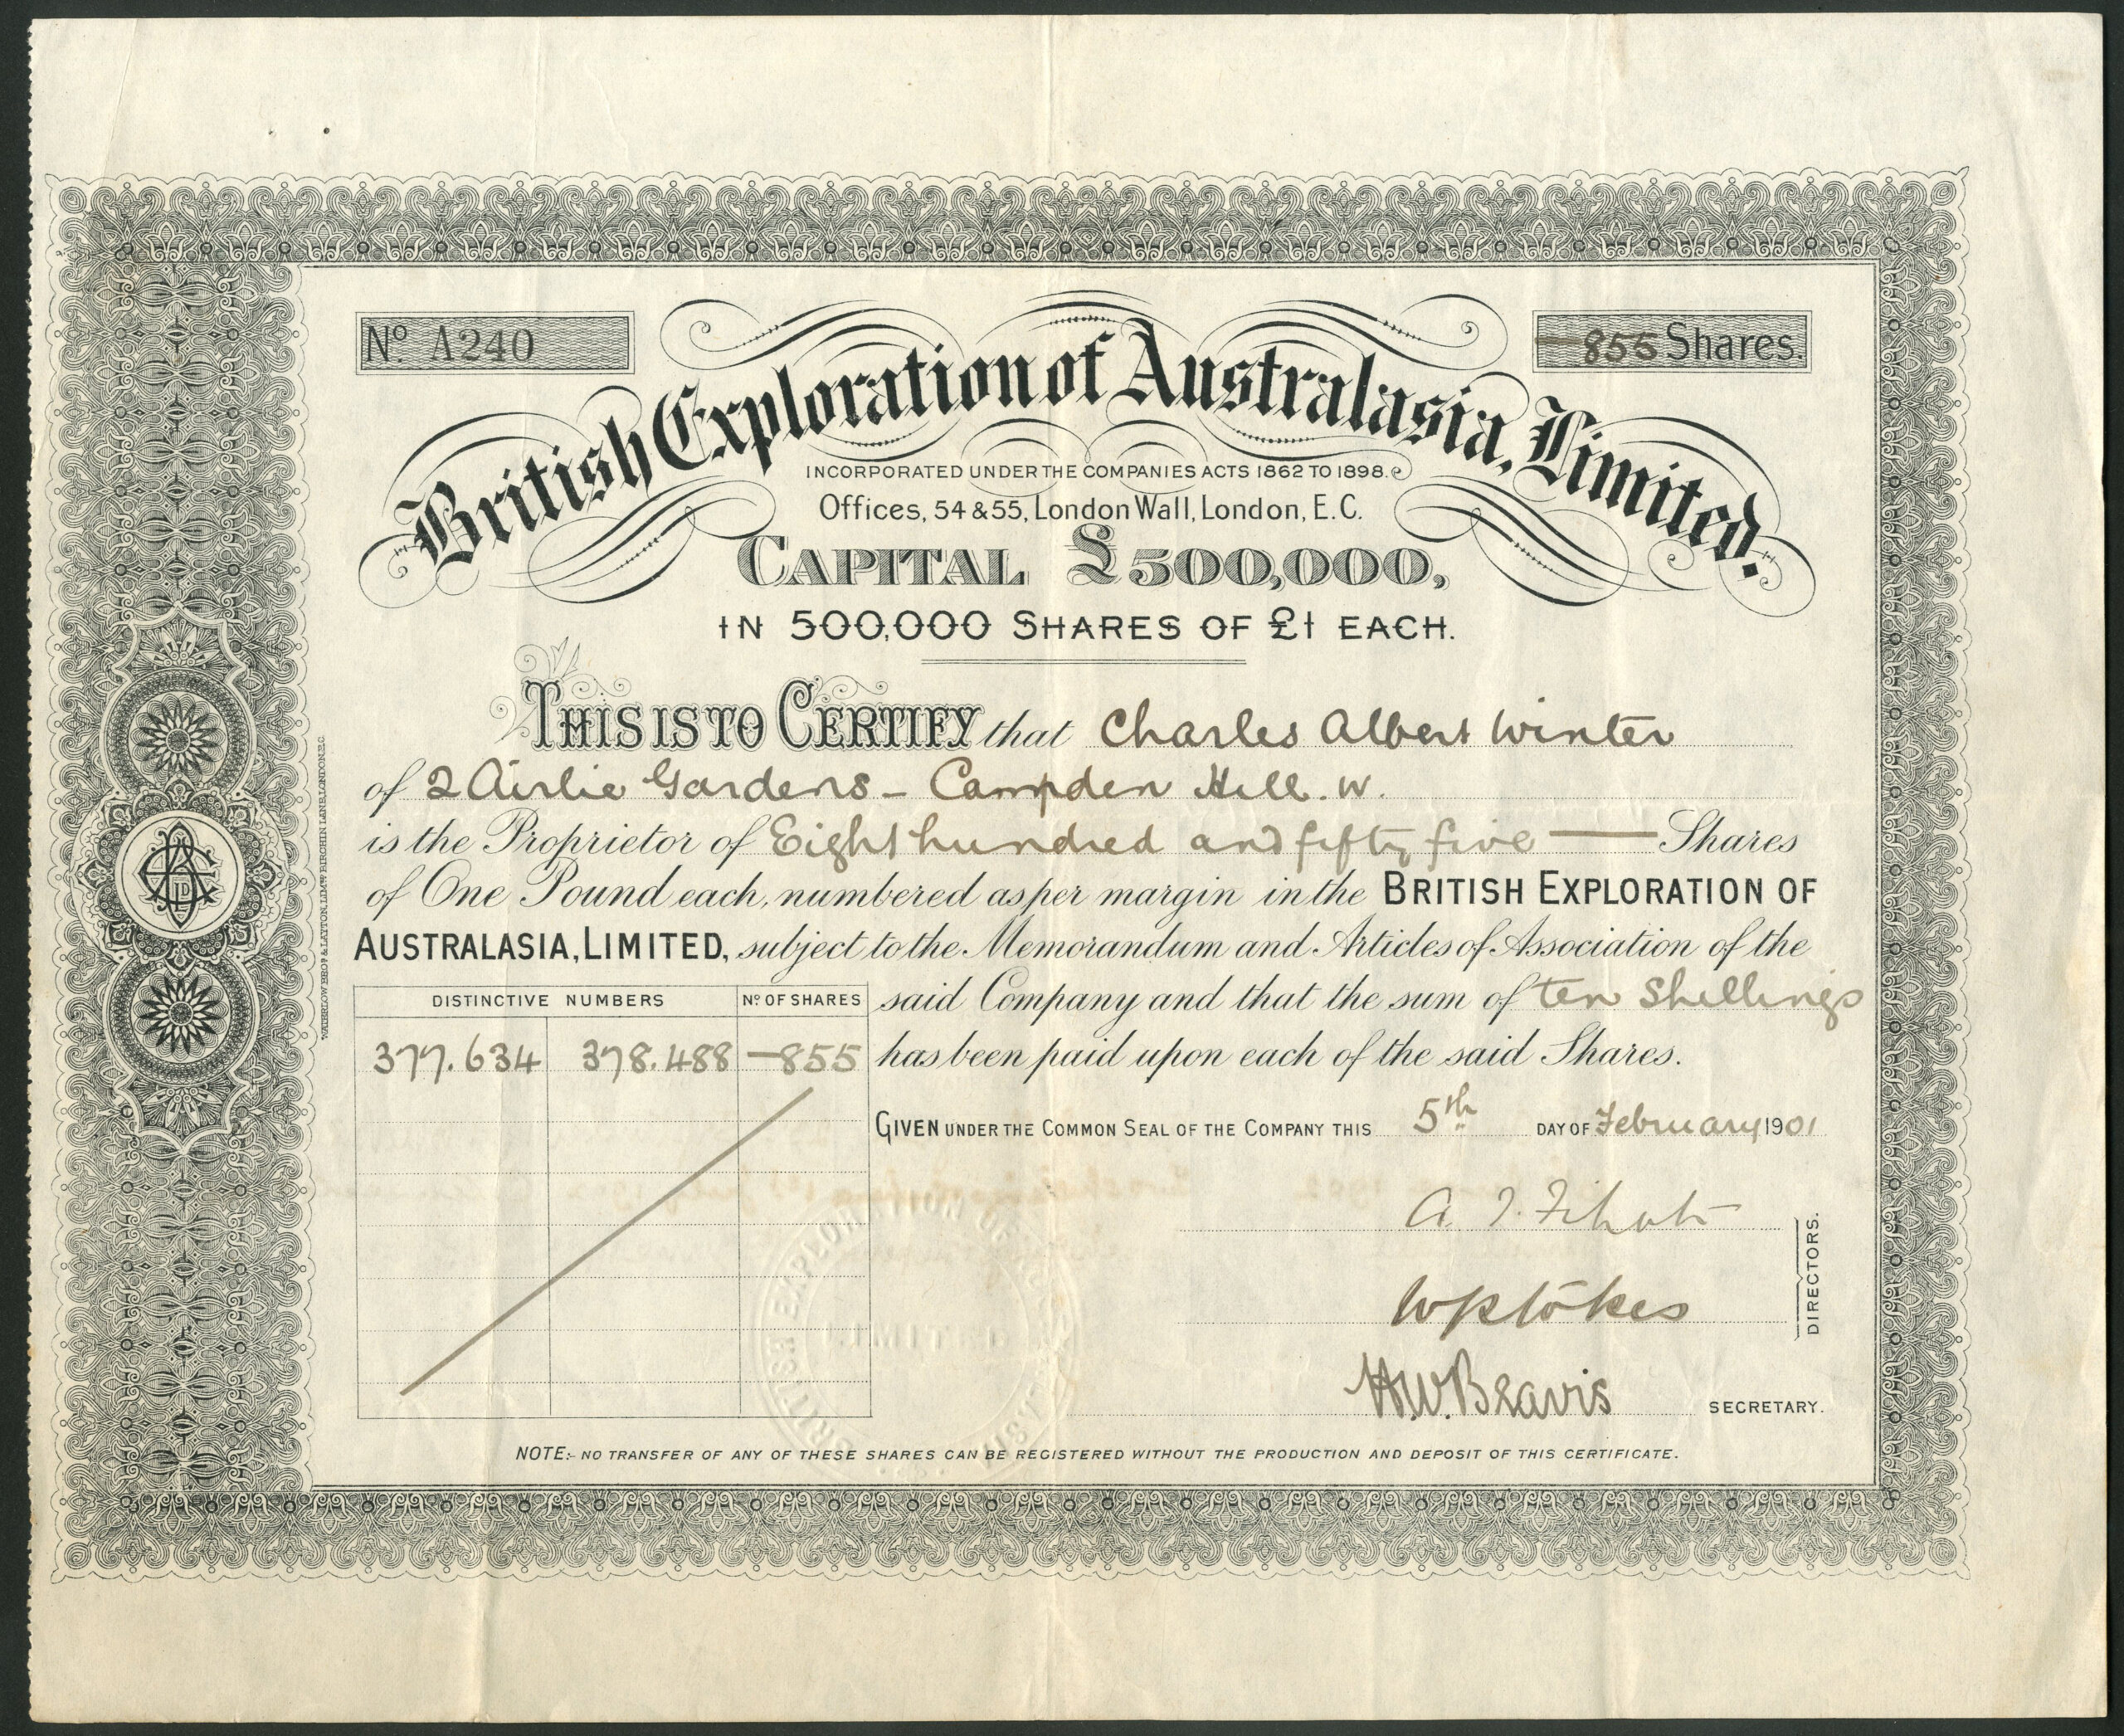 No. A240
855 Shares.
British Exploration of Australasia, Limited.
INCORPORATED UNDER THE COMPANIES ACTS 1862 TO 1898.
Offices, 54 & 55, London Wall, London, E.C.
CAPITAL £500,000,
IN 500,000 SHARES OF £1 EACH.
THIS IS TO CERTIFY that Charles Albert Winter
of 2 Airlie Gardens - Campden Hill. W.
is the Proprietor of Eight hundred and fifty five — Shares
of One Pound each, numbered as per margin in the BRITISH EXPLORATION OF
AUSTRALASIA, LIMITED, subject to the Memorandum and Articles of Association of the
said Company and that the sum of ten shillings
has been paid upon each of the said Shares.
DISTINCTIVE NUMBERS No. OF SHARES
377.634 378.488 —855
GIVEN UNDER THE COMMON SEAL OF THE COMPANY THIS 5th DAY OF February 1901
DIRECTORS.
H.W. Beavis SECRETARY.
NOTE:- NO TRANSFER OF ANY OF THESE SHARES CAN BE REGISTERED WITHOUT THE PRODUCTION AND DEPOSIT OF THIS CERTIFICATE.
WATERLOW BROS & LAYTON, LIMD, BIRCHIN LANE, LONDON, E.C.
BRITISH EXPLORATION OF
LIMITED